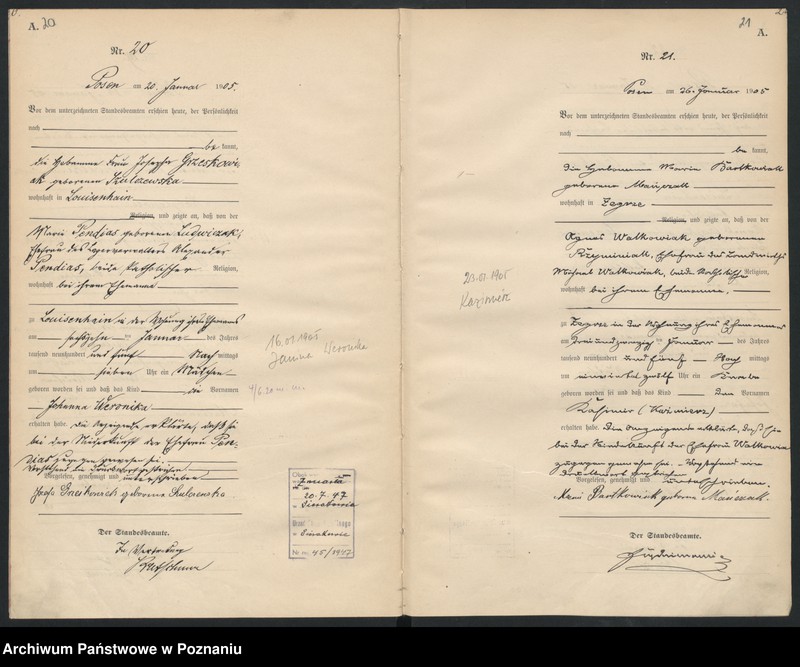 A. 20
Nr. 20
Posen am 20. Januar 1905.
Vor dem unterzeichneten Standesbeamten erschien heute, der Persönlichkeit
nach
be kannt,
die Hebamme Frau Josepha Grzeskowi-
ak geborenen Kulczewska
wohnhaft in Louisenhain
Religion, und zeigte an, daß von der
Marie Pendias geborenen Ludwiczak,
Ehefrau des Lagerverwalters Alexander
Pendias, beide katholischer Religion,
wohnhaft bei ihrem Ehemanne
zu Louisenhain in der Wohnung ihres Ehemannes
am sechszehn ten Januar des Jahres
tausend neunhundert und fünf Nach mittags
um sieben Uhr ein Mädchen
geboren worden sei und daß das Kind die Vornamen
Johanna Weronika
erhalten habe. Die Anzeigende erklärte, daß sie
bei der Niederkunft der Ehefrau Pen-
dias zugegen gewesen sei.
Vorgelesen, genehmigt und unterschrieben
geborene
Der Standesbeamte.
In Vertretung
16.01 1905
Janina Weronika
20.7.47
Nr 45/1947
21
A.
Nr. 21.
Posen am 26. Januar 1905
Vor dem unterzeichneten Standesbeamten erschien heute, der Persönlichkeit
nach
be kannt,
die Hebamme Maria Bartkowiak
geborene Mańczak
wohnhaft in Zegrze
Religion, und zeigte an, daß von der
Agnes Walkowiak geborenen
Krzyminiak, Ehefrau des Landwirths
Michael Walkowiak, beide katholischer Religion,
wohnhaft bei ihrem Ehemanne,
zu Zegrze in der Wohnung ihres Ehemannes
am drei und zwanzig ten Januar des Jahres
tausend neunhundert und fünf Nach mittags
um einviertel zwölf Uhr ein Knabe
geboren worden sei und daß das Kind den Vornamen
Kasimir (Kazimierz)
erhalten habe. Die Anzeigende erklärt, daß sie
bei der Niederkunft der Ehefrau Walkowiak
zugegen gewesen sei.
Vorgelesen, genehmigt und unterschrieben.
Bartkowiak geborene Mańczak.
Der Standesbeamte.
23.01.1905
Kazimierz
Archiwum Państwowe w Poznaniu